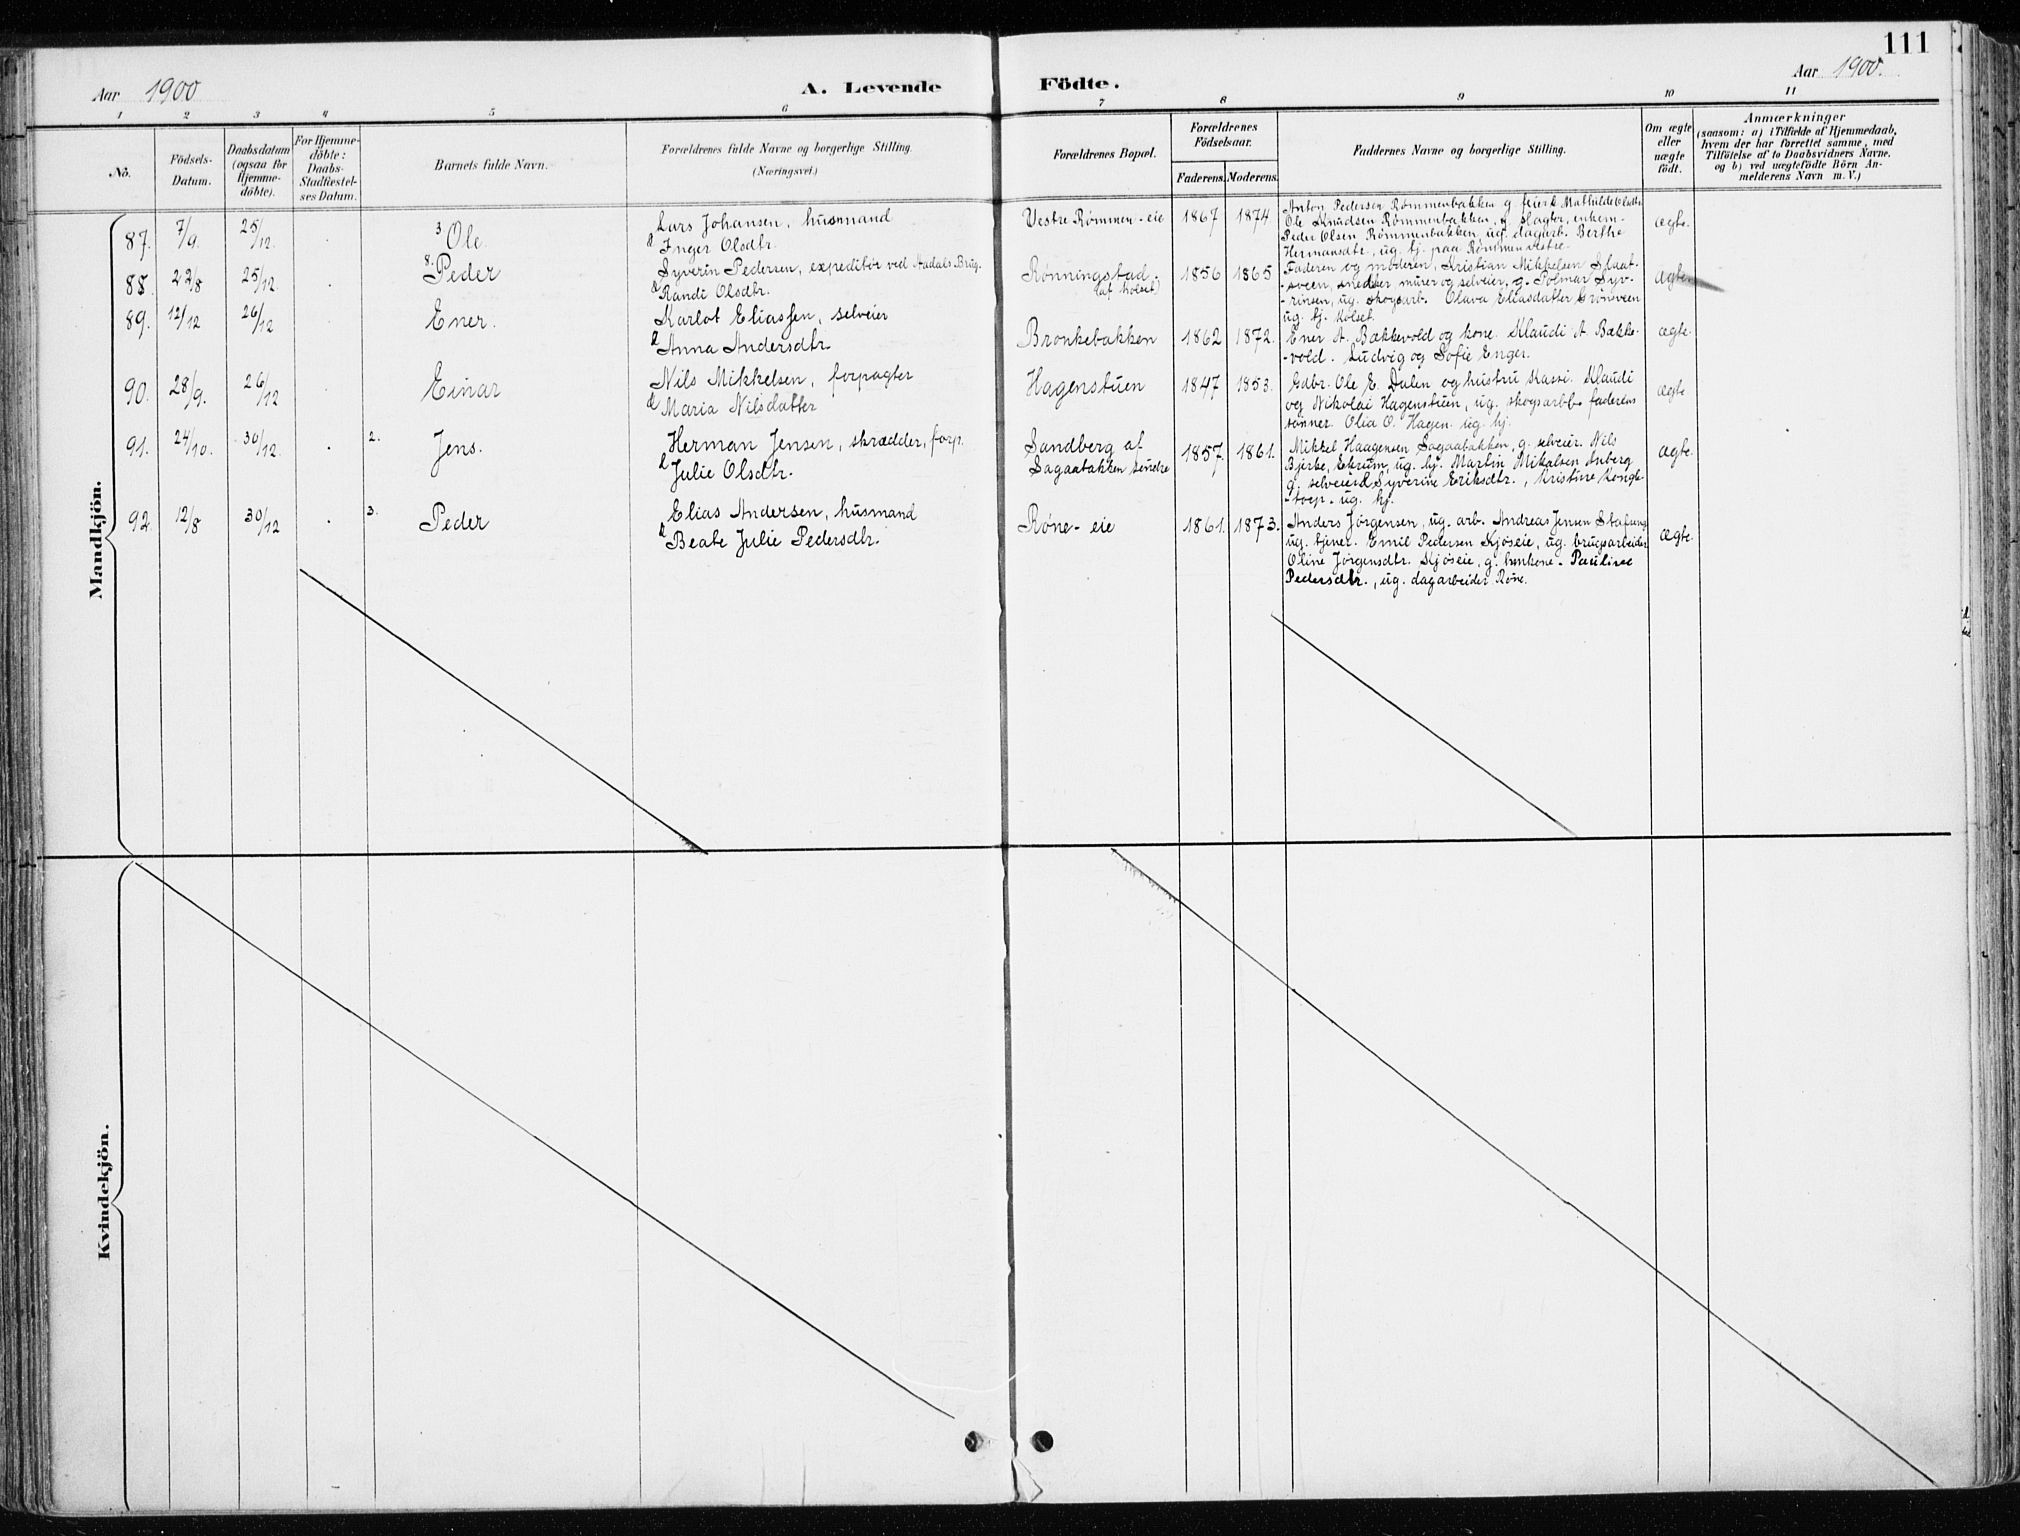 111
Aar 1900
A. Levende Födte.
Aar 1900.
1 2 3 4 5 6 7 8 9 10 11
No.
Födsels-Datum.
Daabsdatum (ogsaa for Hjemmedöbte).
For Hjemmedöbte: Daabs-Stadfæstelses Datum.
Barnets fulde Navn.
Forældrenes fulde Navne og borgerlige Stilling.
(Næringsvei.)
Forældrenes Bopæl.
Forældrenes Födselsaar.
Faderens. Moderens.
Faddernes Navne og borgerlige Stilling.
Om ægte eller uægte födt.
Anmærkninger
(saasom: a) i Tilfælde af Hjemmedaab,
hvem der har forrettet samme, med
Tilföielse af to Daabsvidners Navne,
og b) ved uægtefödte Börn An-
melderens Navn m. V.)
Mandkjön.
87. 7/9. 25/12. 3. Ole.
Lars Johansen, husmand
& Inger Olsdtr.
Vestre Rømmen-eie 1867 1874
Anton Pedersen Rømmenbakken g. Mathilde Olsdtr
Ole Knudsen Rømmenbakken, slagter, enkem.
Peder Olsen Rømmenbakken ug. dagarb. Berthe
Hermansdtr, ug. tj. paa Rømmen vestre.
ægte.
88. 22/8 25/12 8. Peder
Syverin Pedersen, expeditör ved Aadals Brug.
& Randi Olsdtr.
Rønningstad.
(af Kolset)
1856 1865
Faderen og moderen, Kristian Mikkelsen Slaat-
sveen, snedker murer og selveier, g. Polmar Syv-
rinsen, ug. skogsarb. Olava Eliasdatter Grønsveen
ug. tj. Kolset.
ægte.
89. 12/12 26/12 Ener.
Karlot Eliassen, selveier
& Anna Andersdtr.
Bronkebakken 1862 1872.
Ener A. Bækkevold og kone. Klaudi A. Bække-
-vold. Ludvig og Sofie Enger.
ægte.
90. 28/9. 26/12 Einar
Nils Mikkelsen, forpagter
& Maria Nilsdatter
Hagenstuen 1847 1853.
Gdbr. Ole E. Dalen og hustru Kassi. Klaudi
og Nikolai Hagenstuen, ug. skogsarb. faderens
sønner. Olia O. Hagen. ug. hj.
ægte
91. 24/10. 30/12. 2. Jens.
Herman Jensen, skrædder, forp.
& Julie Olsdtr.
Sandberg af
Sagaabakken søndre
1857 1861.
Mikkel Haagensen Sagaabakken, g. selveier. Nils
Bjerke, Ekrum, ug. hj. Martin Mikalsen Aaberg
g. selveier & Syverine Eriksdtr., Kristine Kongs-
-torp - ug. hj.
ægte.
92. 12/8 30/12 3. Peder
Elias Andersen, husmand
& Beate Julie Pedersdtr.
Røne-eie 1861. 1873.
Anders Jörgensen, ug. arb. Andreas Jensen
ug. tjener. Emil Pedersen Kjøseie, ug. brugsarbeider
Oline Jörgensdtr. Kjøseie, g. huskone - Pauline
Pedersdtr., ug. dagarbeider Røne.
Ægte.
Kvindekjön.